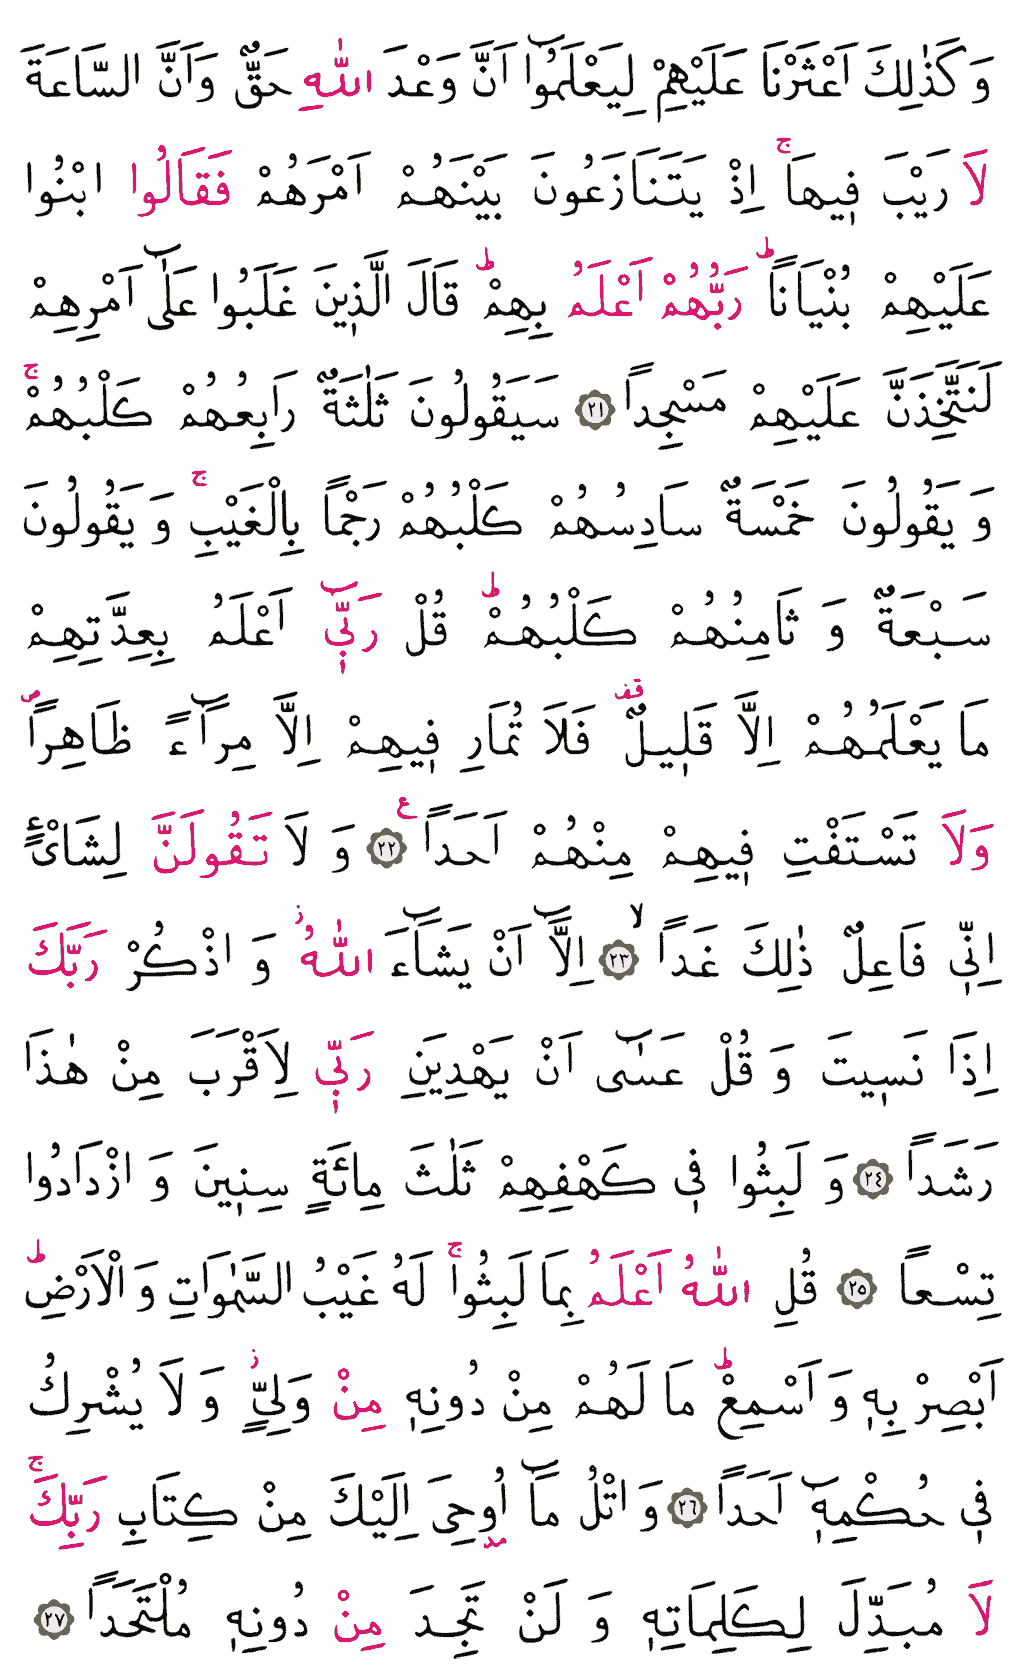 وَ كَذٰلِكَ اَعْثَرْنَا عَلَيْهِمْ لِيَعْلَمُٓوا اَنَّ وَعْدَ اللّٰهِ حَقٌّ وَاَنَّ السَّاعَةَ
لَا رَيْبَ ف۪يهَاۚ اِذْ يَتَنَازَعُونَ بَيْنَهُمْ اَمْرَهُمْ فَقَالُوا ابْنُوا
عَلَيْهِمْ بُنْيَانًاۜ رَبُّهُمْ اَعْلَمُ بِهِمْۜ قَالَ الَّذ۪ينَ غَلَبُوا عَلٰٓى اَمْرِهِمْ
لَنَتَّخِذَنَّ عَلَيْهِمْ مَسْجِداً ﴿٢١﴾ سَيَقُولُونَ ثَلٰثَةٌ رَابِعُهُمْ كَلْبُهُمْۚ
وَ يَقُولُونَ خَمْسَةٌ سَادِسُهُمْ كَلْبُهُمْ رَجْمًا بِالْغَيْبِۚ وَ يَقُولُونَ
سَبْعَةٌ وَ ثَامِنُهُمْ كَلْبُهُمْۜ قُلْ رَبّ۪ٓي اَعْلَمُ بِعِدَّتِهِمْ
مَا يَعْلَمُهُمْ اِلَّا قَل۪يلٌ۠ فَلَا تُمَارِ ف۪يهِمْ اِلَّا مِرَٓاءً ظَاهِراًۖ
وَلَا تَسْتَفْتِ ف۪يهِمْ مِنْهُمْ اَحَداً ﴿٢٢﴾ ع وَ لَا تَقُولَنَّ لِشَاىْءٍ
اِنّ۪ي فَاعِلٌ ذٰلِكَ غَداًۙ ﴿٢٣﴾ اِلَّٓا اَنْ يَشَٓاءَ اللّٰهُۘ وَ اذْكُرْ رَبَّكَ
اِذَا نَس۪يتَ وَ قُلْ عَسٰٓى اَنْ يَهْدِيَنِ رَبّ۪ي لِاَقْرَبَ مِنْ هٰذَا
رَشَداً ﴿٢٤﴾ وَ لَبِثُوا ف۪ي كَهْفِهِمْ ثَلٰثَ مِائَةٍ سِن۪ينَ وَ ازْدَادُوا
تِسْعاً ﴿٢٥﴾ قُلِ اللّٰهُ اَعْلَمُ بِمَا لَبِثُواۚ لَهُ غَيْبُ السَّمٰوَاتِ وَ الْاَرْضِۜ
اَبْصِرْ بِه۪ وَ اَسْمِعْۜ مَا لَهُمْ مِنْ دُونِه۪ مِنْ وَلِيٍّۘ وَ لَا يُشْرِكُ
ف۪ي حُكْمِه۪ٓ اَحَداً ﴿٢٦﴾ وَ اتْلُ مَٓا اُو۫حِيَ اِلَيْكَ مِنْ كِتَابِ رَبِّكَۚ
لَا مُبَدِّلَ لِكَلِمَاتِه۪ وَ لَنْ تَجِدَ مِنْ دُونِه۪ مُلْتَحَداً ﴿٢٧﴾